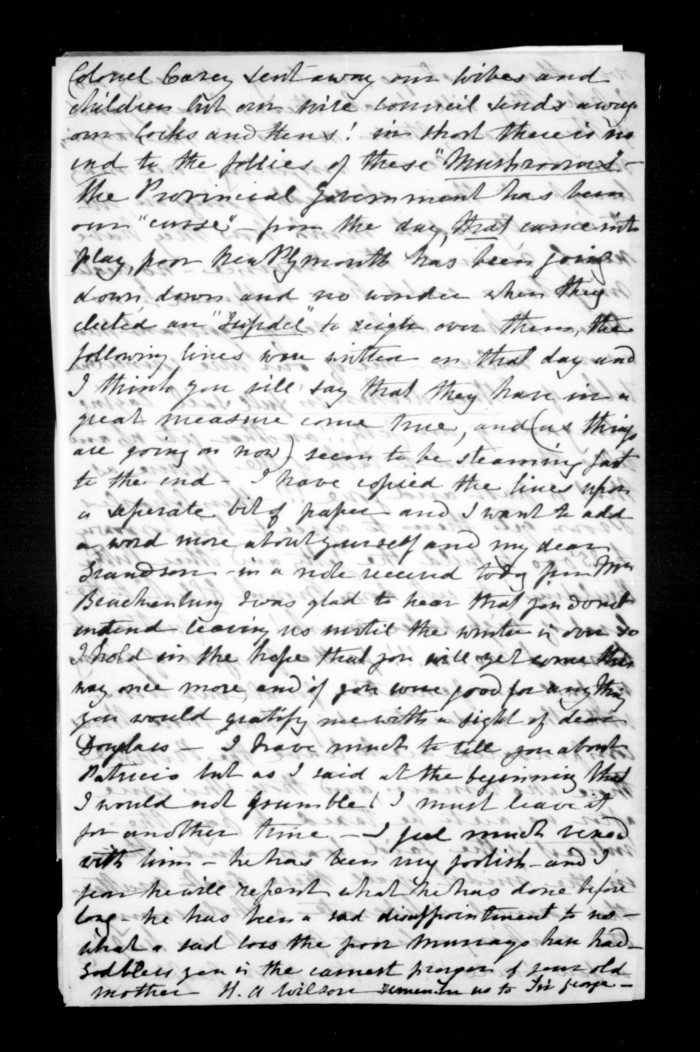 Colonel Carey sent away our wives and
children but our wise council sends away
our Cocks and Hens! in short there is no
end to the follies of these "Mushrooms" -
The Provincial Government has been
our "curse" - from the day that came into
play, poor New Plymouth has been going
down, down and no wonder when they
elected an "Infidel" to reign over them, the
following lines were written on that day and
I think you will say that they have in a
great measure come true, and (as things
are going on now) seem to be steaming fast
to the end - I have copied the lines upon
a seperate bit of paper and I want to add
a word more about yourself and my dear
Grandson - in a note received today from Mrs
I was glad to hear that you do not
intend leaving us until the winter is over so
I hold in the hope that you will yet come this
way once more, and if you were good for anything
you would gratify me with a sight of dear
Douglass - I have much to tell you about
Patricio but as I said at the beginning that
I would not grumble! I must leave it
for another time - I feel much vexed
with him - he has been very foolish - and I
fear he will repent what he has done before
long - he has been a sad disappointment to us -
what a sad loss the poor Murrays have had -
God bless you is the earnest prayer of your old
mother H. A Wilson remember us to Sir George -